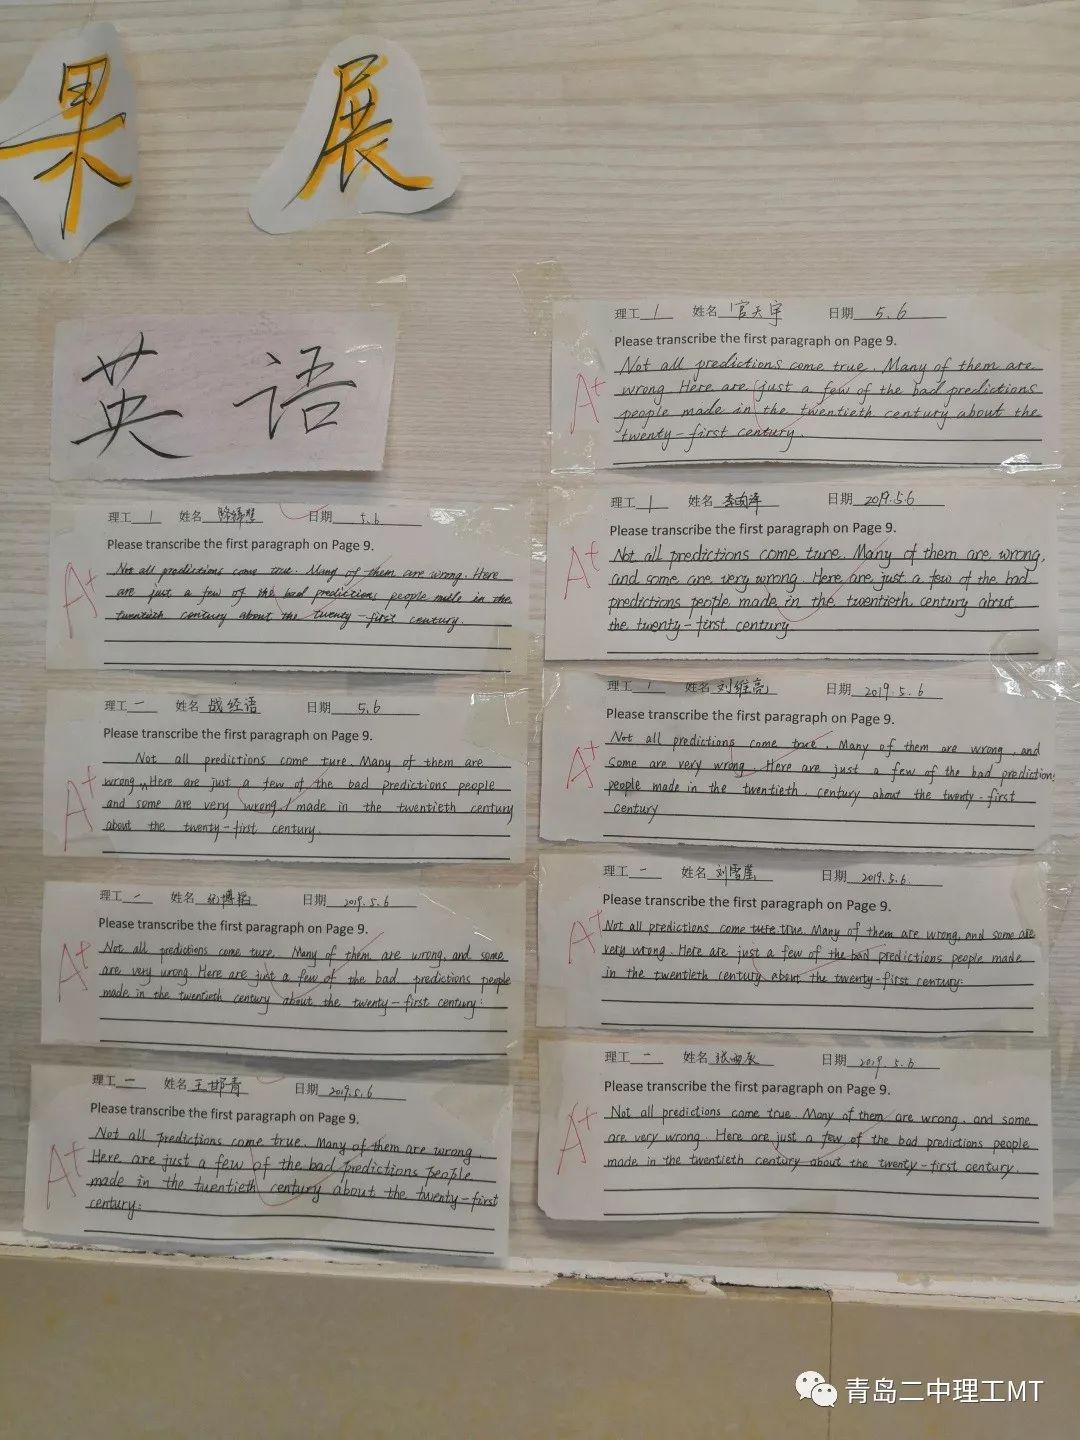 果 展
英 语
理工 1 姓名 日期 5.6
Please transcribe the first paragraph on Page 9.
Not all predictions come true. Many of them are wrong. Here
are just a few of the bad predictions people made in the
twentieth century about the twenty-first century.
理工 一 姓名 战经语 日期 5.6
Please transcribe the first paragraph on Page 9.
Not all predictions come ture. Many of them are
wrong. Here are just a few of the bad predictions people
and some are very wrong made in the twentieth century
about the twenty-first century.
理工 一 姓名 纪博韬 日期 2019.5.6
Please transcribe the first paragraph on Page 9.
Not all predictions come ture. Many of them are wrong, and some
are very wrong. Here are just a few of the bad predictions people
made in the twentieth century about the twenty-first century.
理工 一 姓名 王邯青 日期 2019.5.6
Please transcribe the first paragraph on Page 9.
Not all predictions come true. Many of them are wrong.
Here are just a few of the bad predictions people
made in the twentieth century about the twenty-first
century.
理工 1 姓名 官天宇 日期 5.6
Please transcribe the first paragraph on Page 9.
Not all predictions come true. Many of them are
wrong. Here are just a few of the bad predictions
people made in the twentieth century about the
twenty-first century.
理工 1 姓名 日期 2019.5.6
Please transcribe the first paragraph on Page 9.
Not all predictions come ture. Many of them are wrong,
and some are very wrong. Here are just a few of the bad
predictions people made in the twentieth century about
the twenty-first century
理工 1 姓名 刘维亮 日期 2019.5.6
Please transcribe the first paragraph on Page 9.
Not all predictions come true. Many of them are wrong, and
Some are very wrong. Here are just a few of the bad predictions
people made in the twentieth century about the twenty-first
century
理工 一 姓名 日期 2019.5.6.
Please transcribe the first paragraph on Page 9.
Not all predictions come ture true. Many of them are wrong, and some are
very wrong. Here are just a few of the bad predictions people made
in the twentieth century about the twenty-first century.
理工 一 姓名 日期 2019.5.6
Please transcribe the first paragraph on Page 9.
Not all predictions come true. Many of them are wrong, and some
are very wrong. Here are just a few of the bad predictions people
made in the twentieth century about the twenty-first century.
A+
A+
A+
A+
A+
A+
A+
A+
A+
青岛二中理工MT